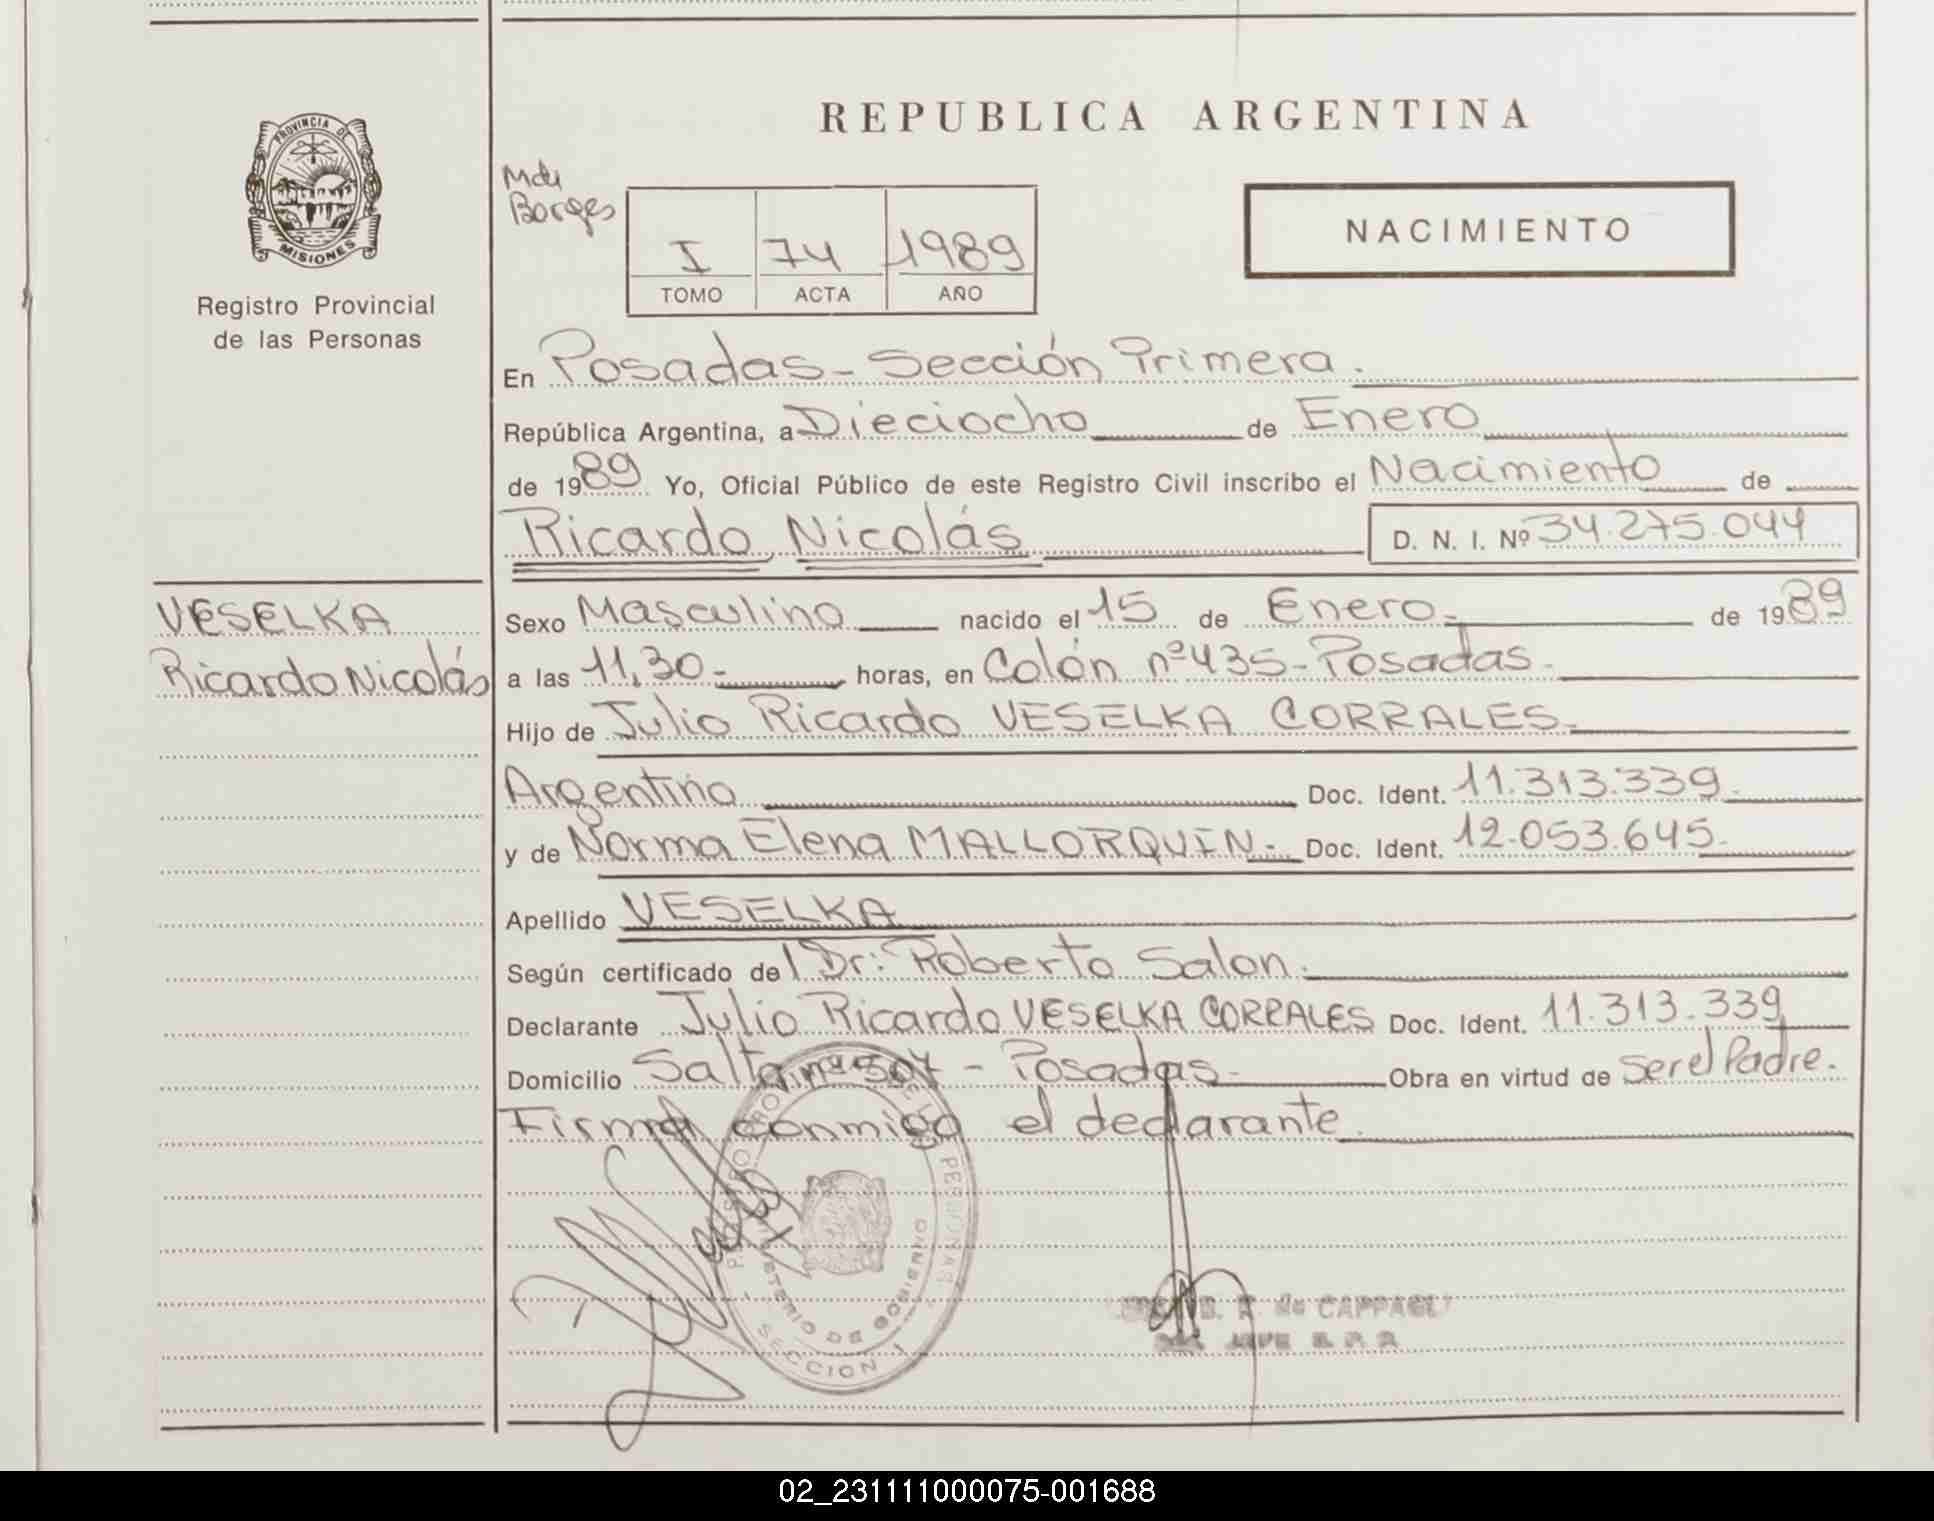 REPUBLICA ARGENTINA
PROVINCIA DE
MISIONES
Registro Provincial
de las Personas
Borges
I 74 1989
TOMO ACTA AÑO
NACIMIENTO
En Posadas - Sección Primera.
República Argentina, a Dieciocho de Enero
de 1989 Yo, Oficial Público de este Registro Civil inscribo el Nacimiento de
Ricardo Nicolás D. N. I. Nº 34.275.044
VESELKA
Ricardo Nicolás
Sexo Masculino nacido el 15 de Enero. de 1989
a las 11,30 horas, en Colón nº 435 - Posadas.
Hijo de Julio Ricardo VESELKA CORRALES.
Argentino Doc. Ident. 11.313.339.
y de Norma Elena MALLORQUIN. Doc. Ident. 12.053.645.
Apellido VESELKA
Según certificado del Dr: Roberto Salon.
Declarante Julio Ricardo VESELKA CORRALES Doc. Ident. 11.313.339
Domicilio Salta nº 507 - Posadas. Obra en virtud de Ser el Padre.
Firma conmigo el declarante.
PERSONAS
MINISTERIO DE GOBIERNO
SECCION 1
de CAPPAGLI
JEFE
02_231111000075-001688